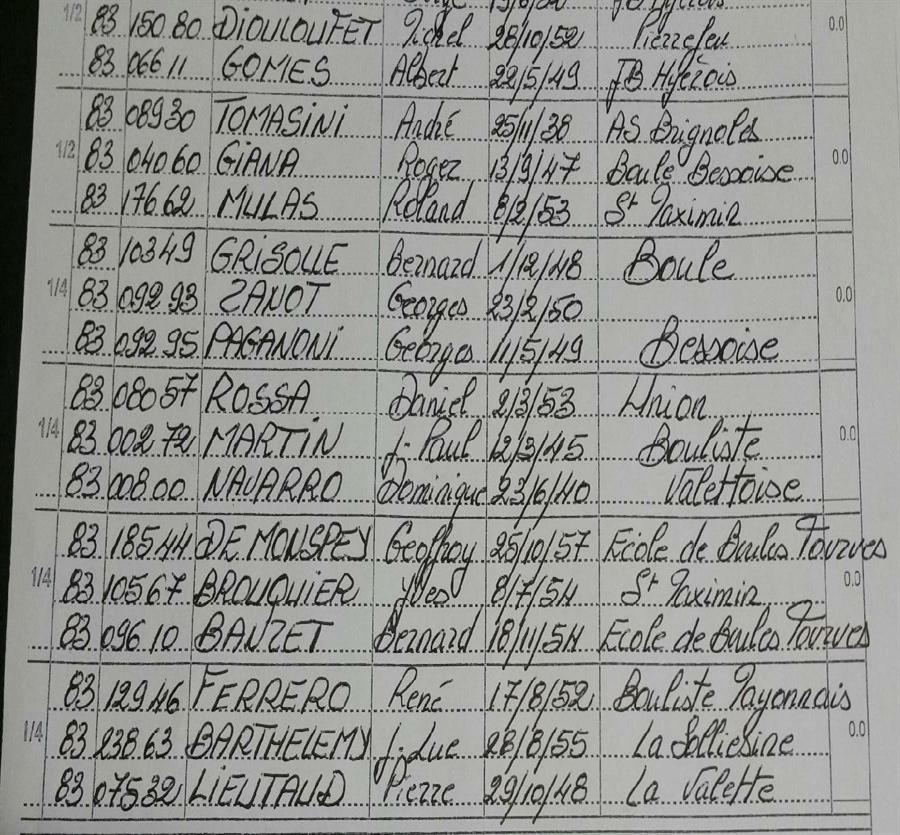 1/2 83 150 80 DIOULOUFET Michel 28/10/52 Pierrefeu 0.0
83 066 11 GOMES Albert 22/5/49 JB Hyérois
83 089 30 TOMASINI André 25/11/38 AS Brignoles
1/2 83 040 60 GIANA Roger 13/9/47 Boule Bessoise 0.0
83 176 62 MULAS Roland 8/2/53 St Maximin
83 103 49 GRISOLLE Bernard 1/12/48 Boule
1/4 83 092 93 ZANOT Georges 23/2/50 0.0
83 092 95 PAGANONI Georges 11/5/49 Bessoise
83 080 57 ROSSA Daniel 2/3/53 Union
1/4 83 002 72 MARTIN J. Paul 12/3/45 Bouliste 0.0
83 008 00 NAVARRO Dominique 23/6/40 Valettoise
83 185 44 DE MONSPEY Geoffroy 25/10/57 Ecole de Boules Tourves
1/4 83 105 67 BROUQUIER Yves 8/7/54 St Maximin 0.0
83 096 10 BANZET Bernard 18/11/54 Ecole de Boules Tourves
83 129 46 FERRERO René 17/8/52 Bouliste Mayonnais
1/4 83 238 63 BARTHELEMY J. Luc 28/8/55 La Solliesine 0.0
83 075 32 LIEUTAUD Pierre 29/10/48 La Valette